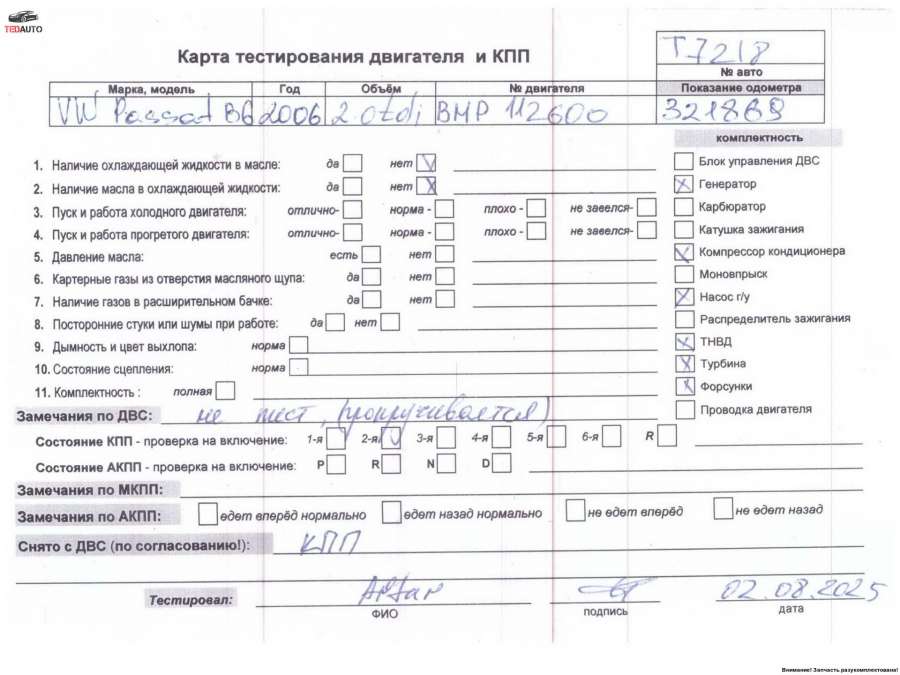 TEDAUTO
Карта тестирования двигателя и КПП
T7218
№ авто
Марка, модель Год Объём № двигателя Показание одометра
VW Passat B6 2006 2.0tdi BMP 112600 321869
комплектность
1. Наличие охлаждающей жидкости в масле: да нет
2. Наличие масла в охлаждающей жидкости: да нет
3. Пуск и работа холодного двигателя: отлично- норма - плохо - не завелся-
4. Пуск и работа прогретого двигателя: отлично- норма - плохо - не завелся-
5. Давление масла: есть нет
6. Картерные газы из отверстия масляного щупа: да нет
7. Наличие газов в расширительном бачке: да нет
8. Посторонние стуки или шумы при работе: да нет
9. Дымность и цвет выхлопа: норма
10. Состояние сцепления: норма
11. Комплектность : полная
Блок управления ДВС
Генератор
Карбюратор
Катушка зажигания
Компрессор кондиционера
Моновпрыск
Насос г/у
Распределитель зажигания
ТНВД
Турбина
Форсунки
Проводка двигателя
Замечания по ДВС: не тест, (прокручивается)
Состояние КПП - проверка на включение: 1-я 2-я 3-я 4-я 5-я 6-я R
Состояние АКПП - проверка на включение: P R N D
Замечания по МКПП:
Замечания по АКПП: едет вперёд нормально едет назад нормально не едет вперёд не едет назад
Снято с ДВС (по согласованию!): КПП
Тестировал: Artur 02.08.2025
ФИО подпись дата
Внимание! Запчасть разукомплектована!